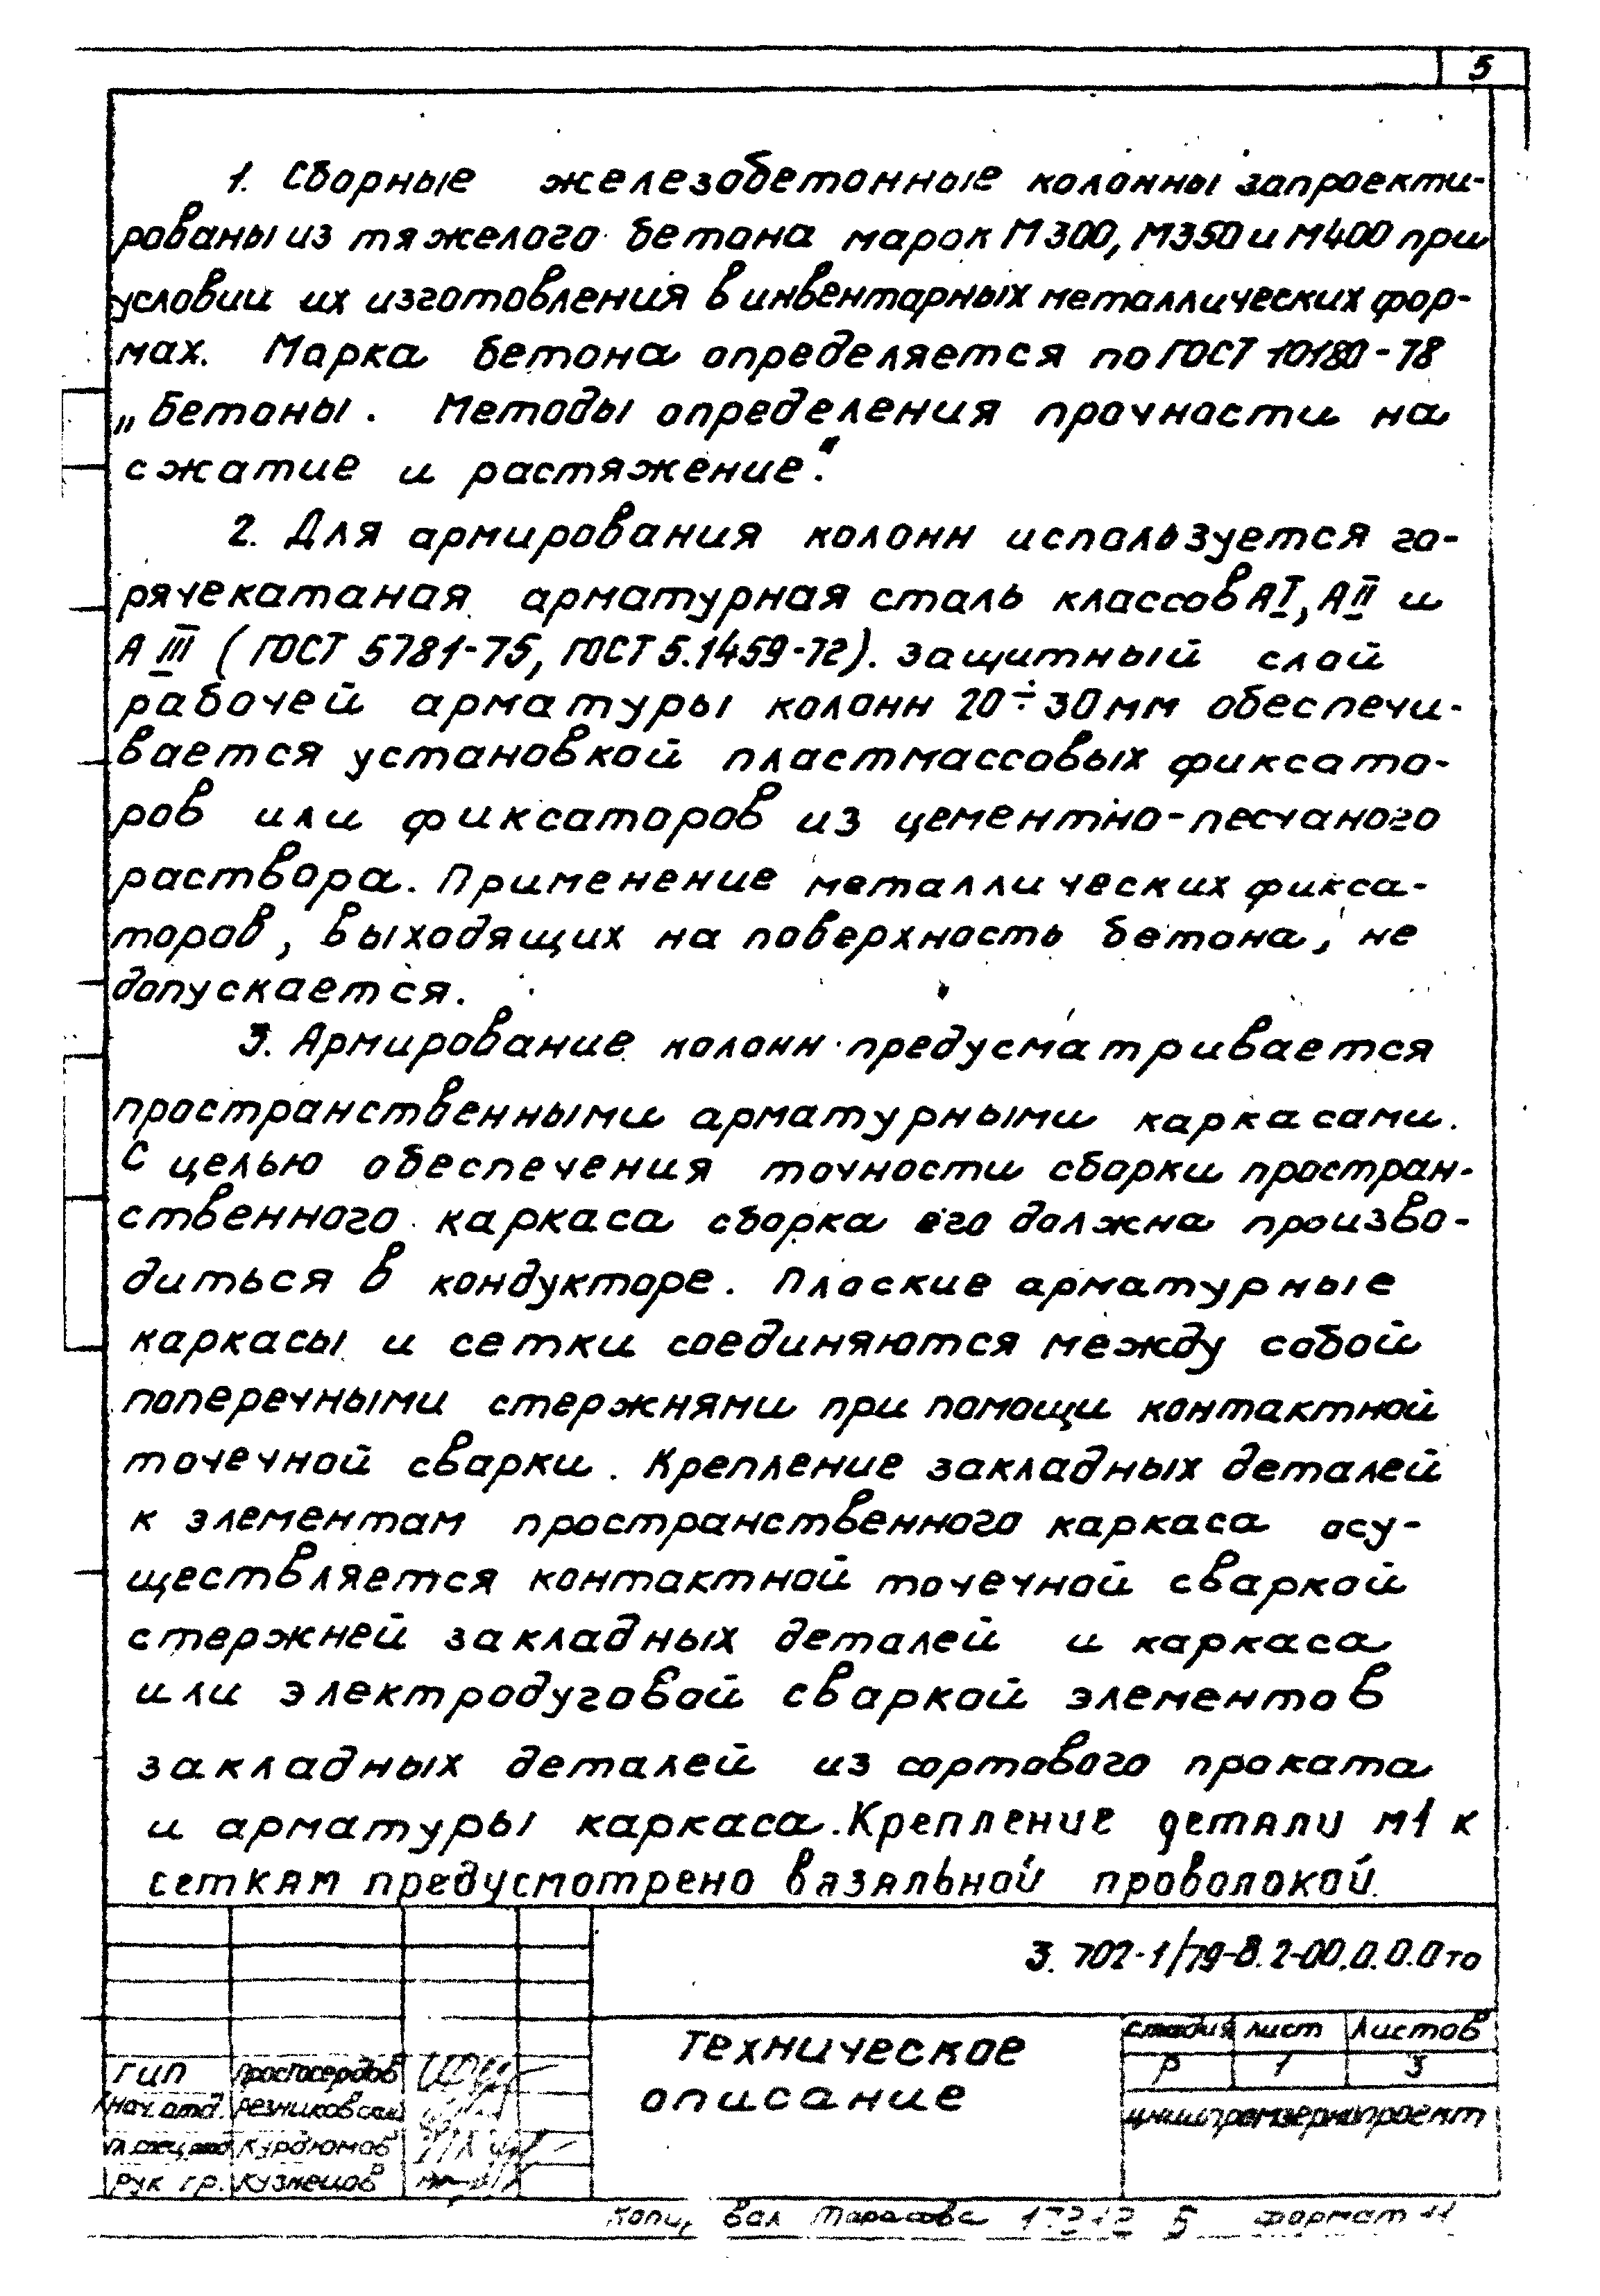 5
1. Сборные железобетонные колонны запроекти-
рованы из тяжелого бетона марок М300, М350 и М400 при
условии их изготовления в инвентарных металлических фор-
мах. Марка бетона определяется по ГОСТ 10180-78
„Бетоны. Методы определения прочности на
сжатие и растяжение“.
2. Для армирования колонн используется го-
рячекатаная арматурная сталь классов АI, АII и
АIII (ГОСТ 5781-75, ГОСТ 5.1459-72). Защитный слой
рабочей арматуры колонн 20÷30мм обеспечи-
вается установкой пластмассовых фиксато-
ров или фиксаторов из цементно-песчаного
раствора. Применение металлических фикса-
торов, выходящих на поверхность бетона, не
допускается.
3. Армирование колонн предусматривается
пространственными арматурными каркасами.
С целью обеспечения точности сборки простран-
ственного каркаса сборка его должна произво-
диться в кондукторе. Плоские арматурные
каркасы и сетки соединяются между собой
поперечными стержнями при помощи контактной
точечной сварки. Крепление закладных деталей
к элементам пространственного каркаса осу-
ществляется контактной точечной сваркой
стержней закладных деталей и каркаса
или электродуговой сваркой элементов
закладных деталей из сортового проката
и арматуры каркаса. Крепление детали М1 к
сеткам предусмотрено вязальной проволокой.
3.702-1/79-В.2-00.0.0.0ТО
Техническое
описание
Стадия Лист Листов
Р 1 3
ЦНИИпромзернопроект
ГИП Простосердов
Нач. отд. Резниковский
Гл. спец. отд. Курдюмов
Рук. гр. Кузнецов
Копир. Вал Тарасова 5 Формат 11